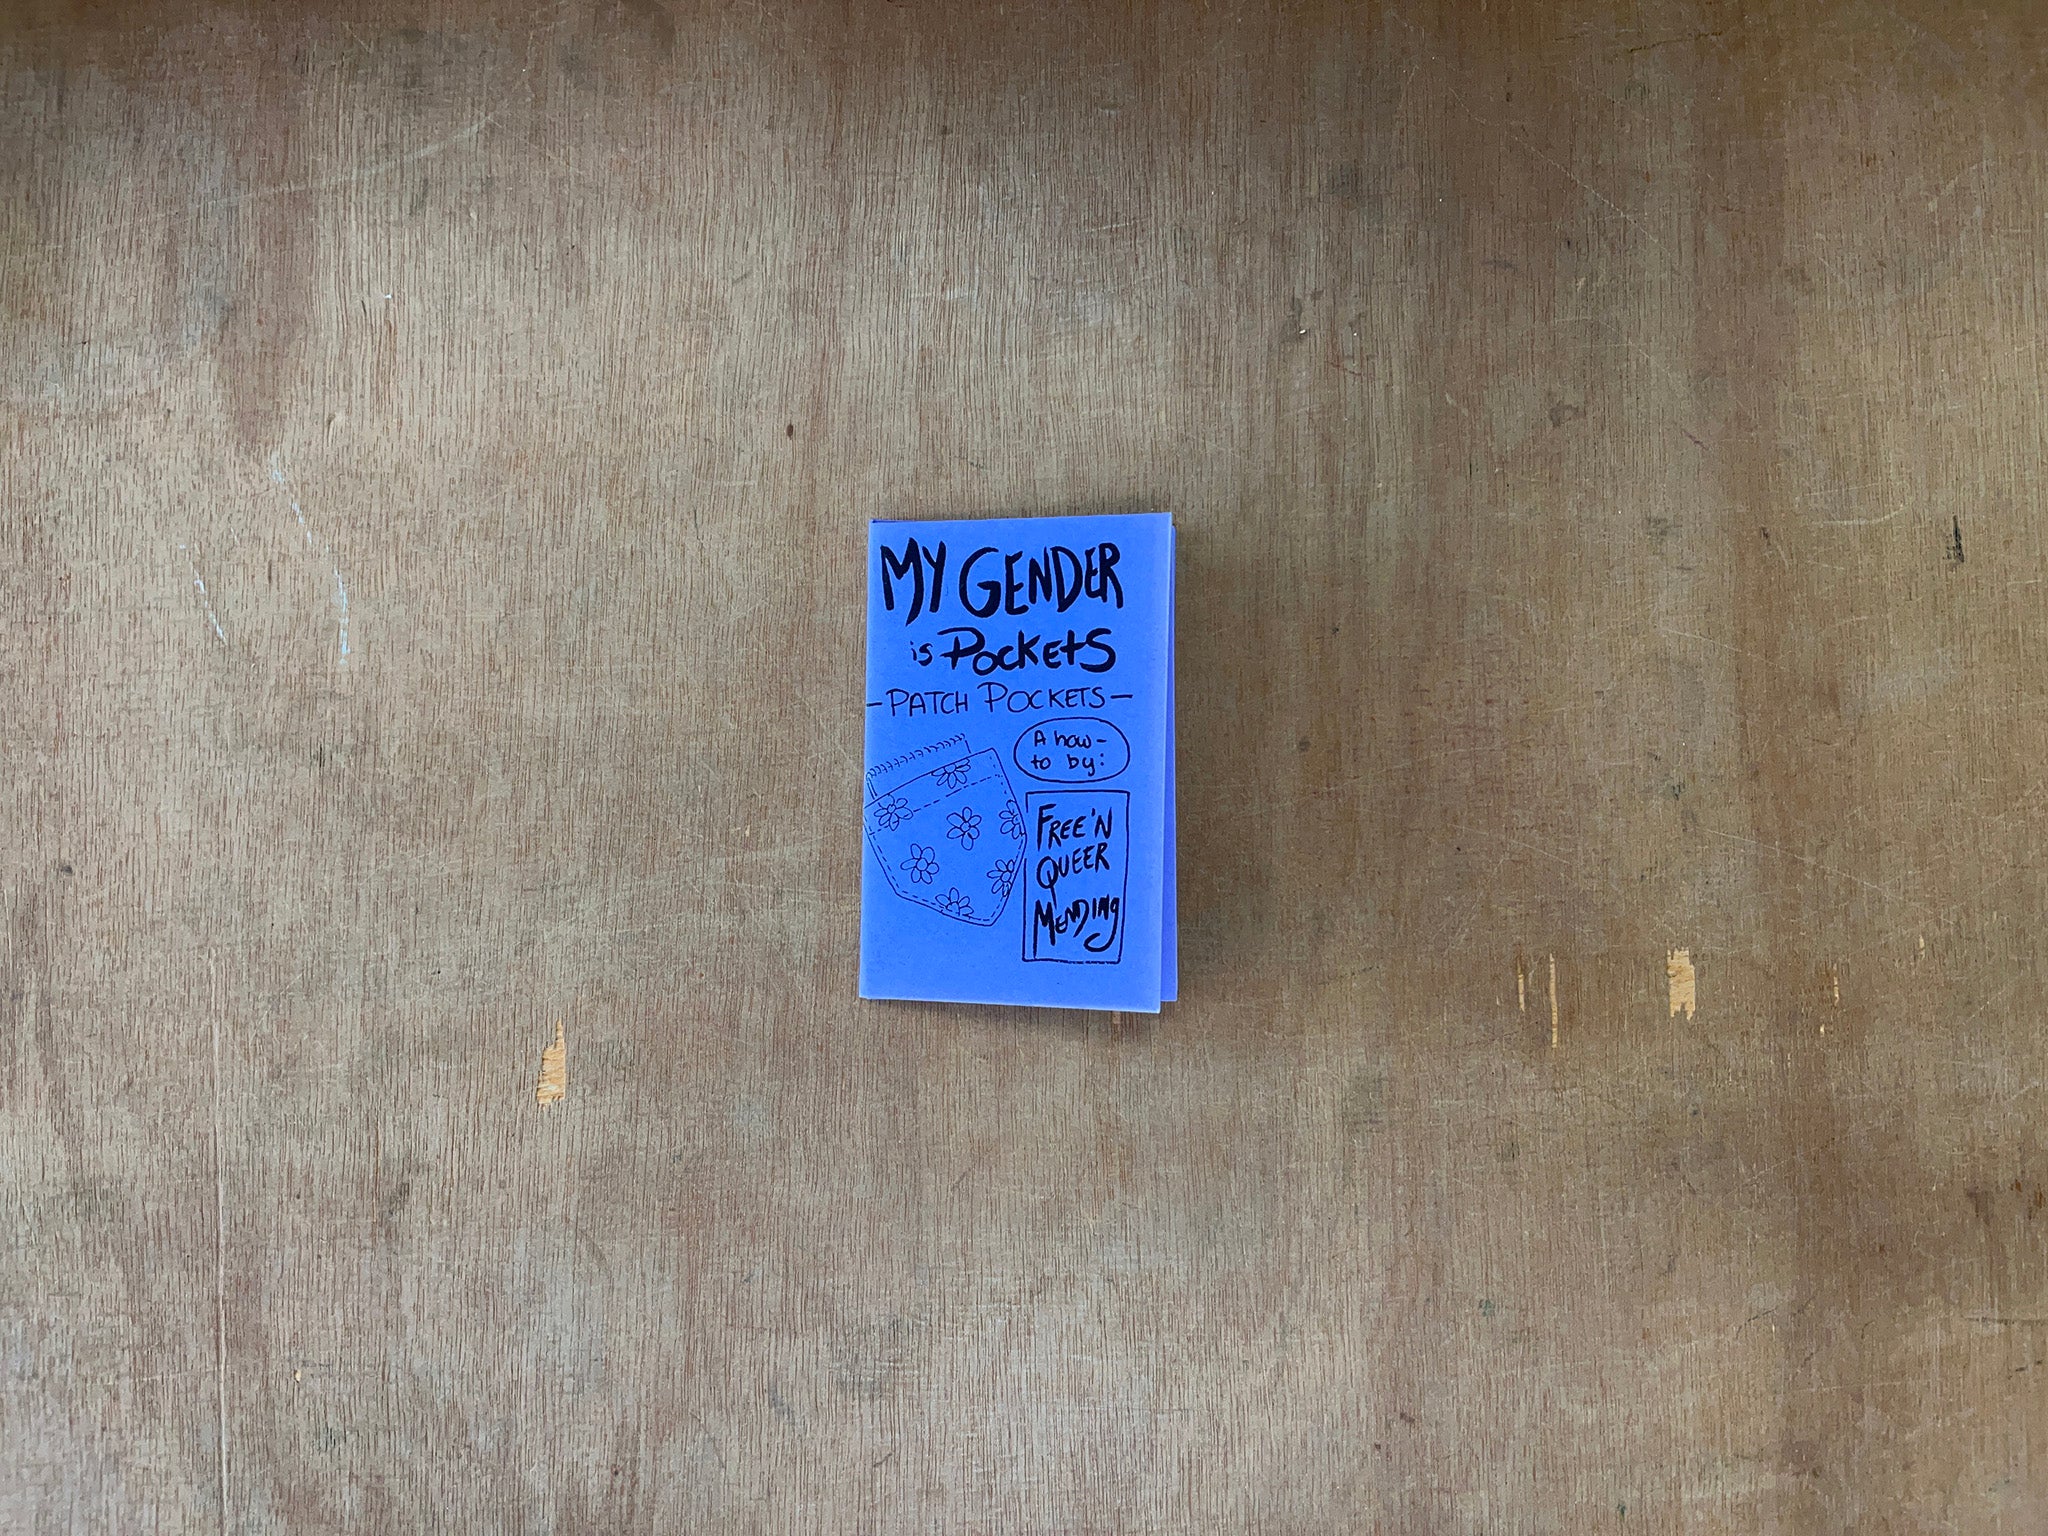 MY GENDER
is PocketS
-PATCH POCKETS-
A how-
to by:
FREE'N
QUEER
MENDINg